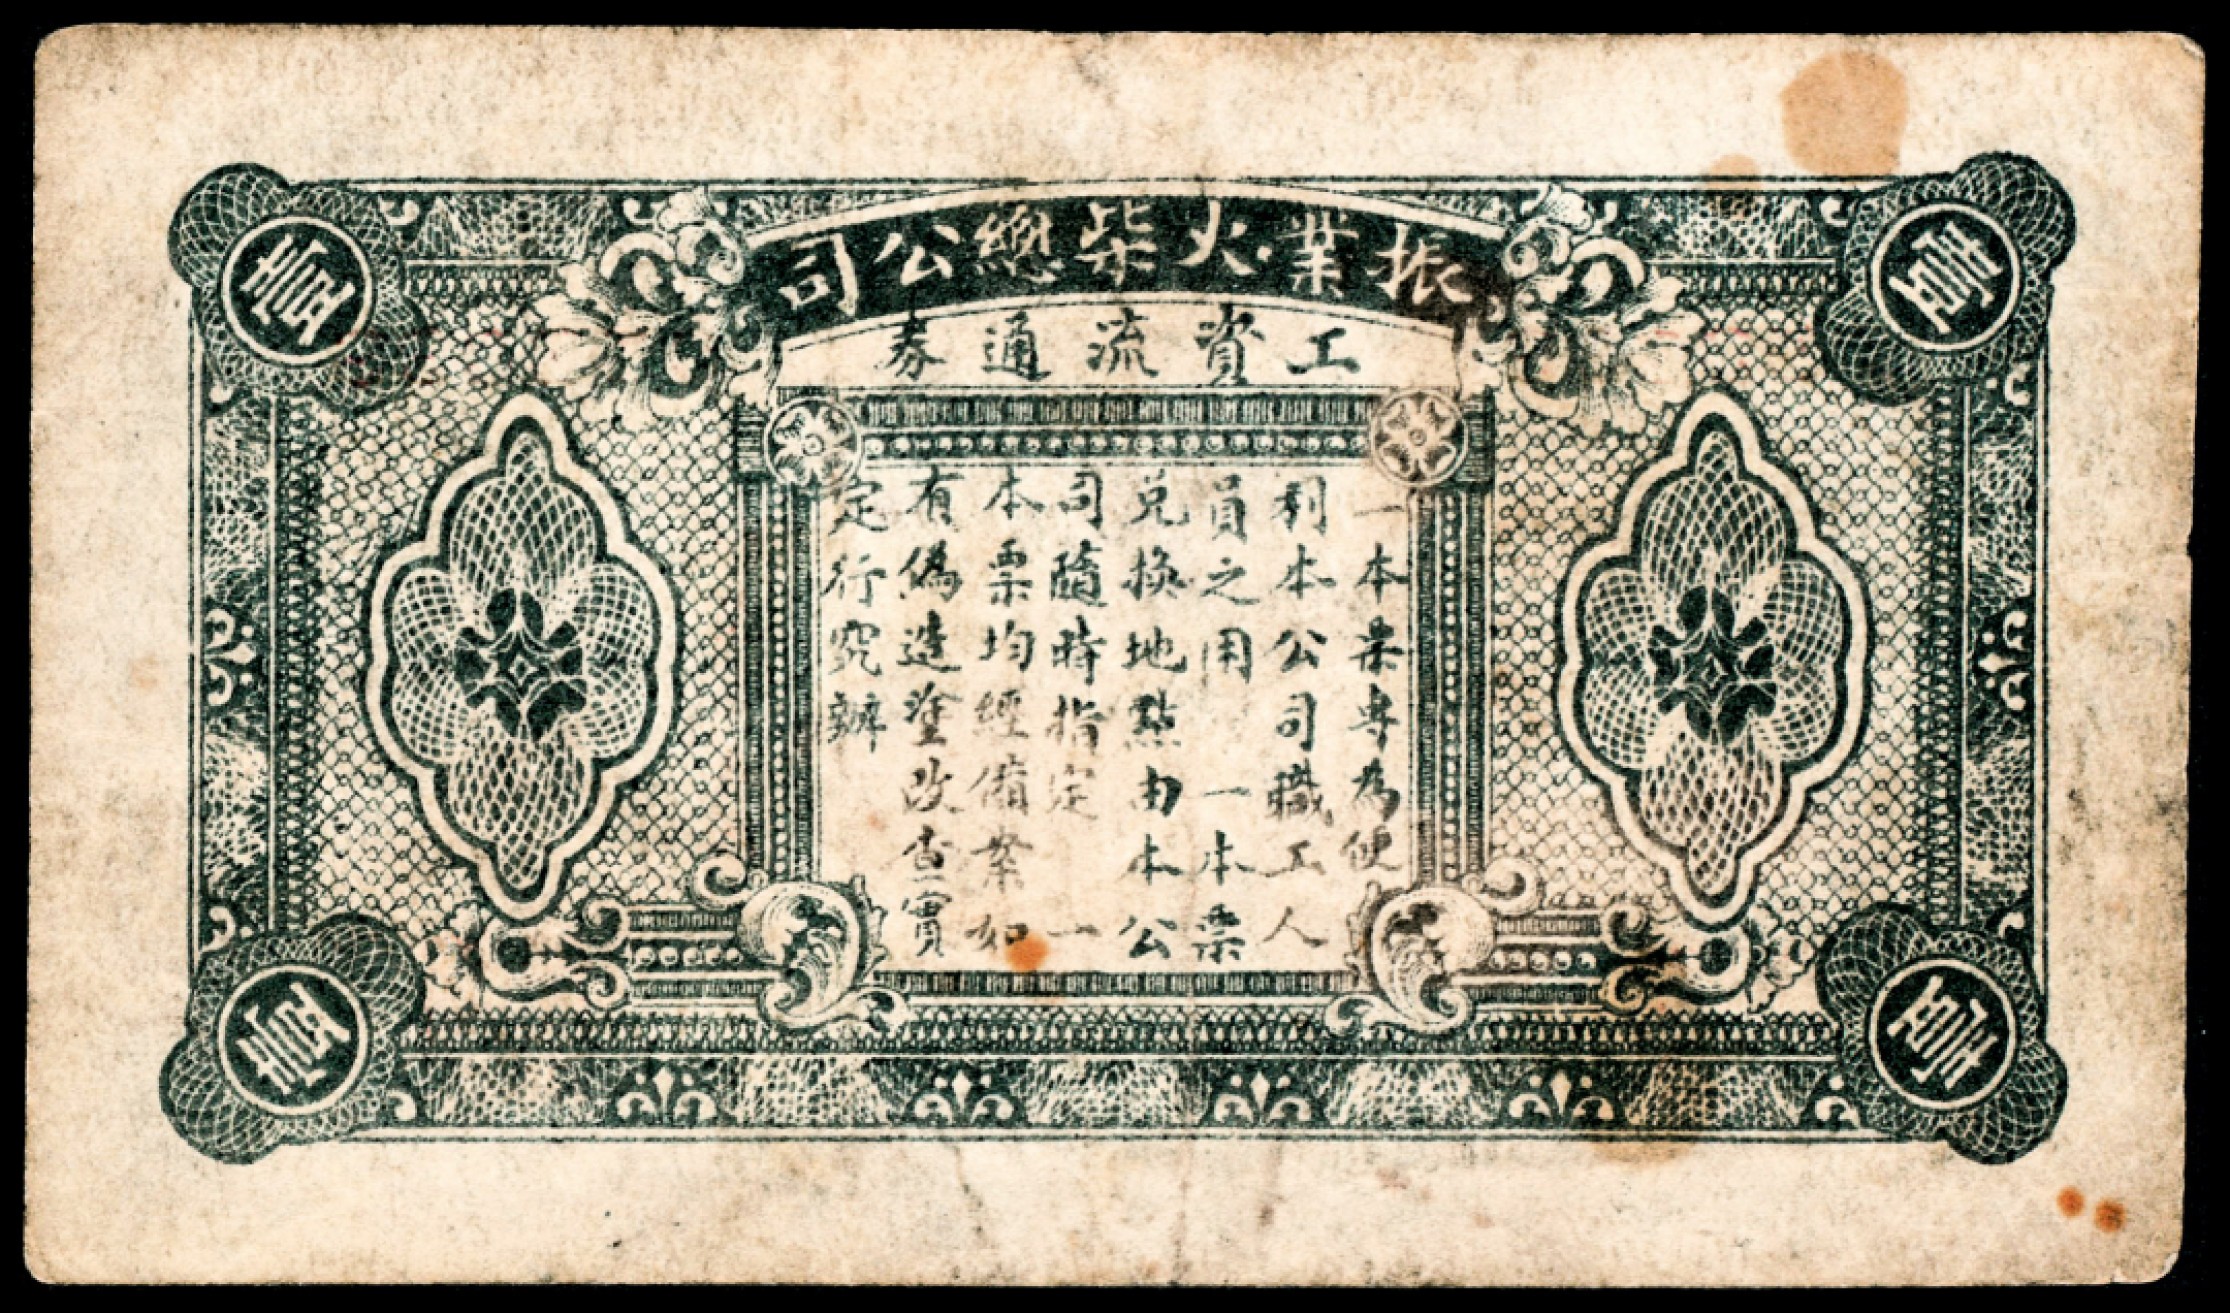 振業火柴總公司
工資流通券
壹
壹
壹
壹
一本票專為便
利本公司職工人
員之用 一本票
兌換地點由本公
司隨時指定 一
本票均經備案如
有偽造塗改查實
定行究辦